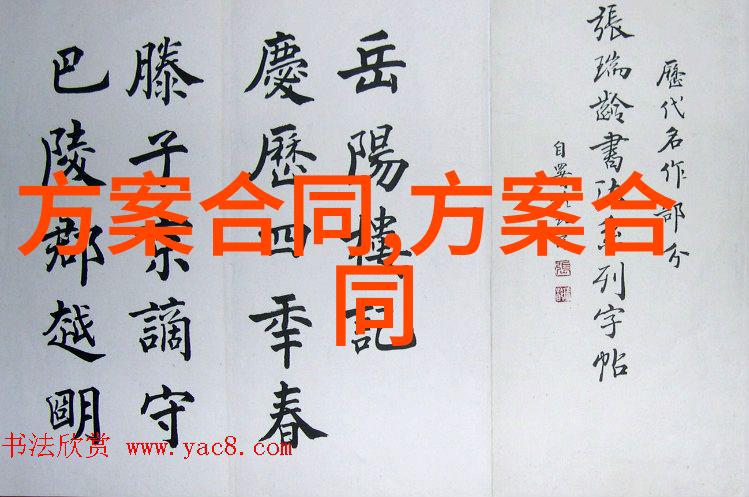 歷代名作部分
張瑞齡書法系列字帖
岳陽樓記
慶歷四年春
滕子京謫守
巴陵郡越明
方案合同,方案合
同
书法欣赏 www.yac8.com